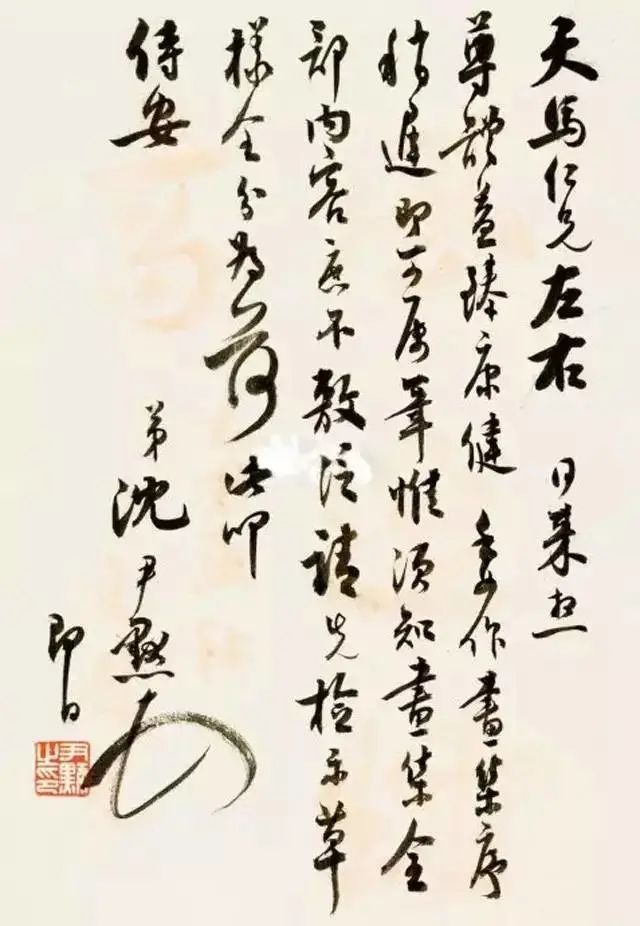 天馬仁兄左右 日來想
尊體益臻康健 委作畫集序
稍遲即可屬筆惟須知畫集全
部內容庶不敷泛請先檢示草
樣全分為荷 此叩
侍安
弟沈尹默
即日
尹默之印